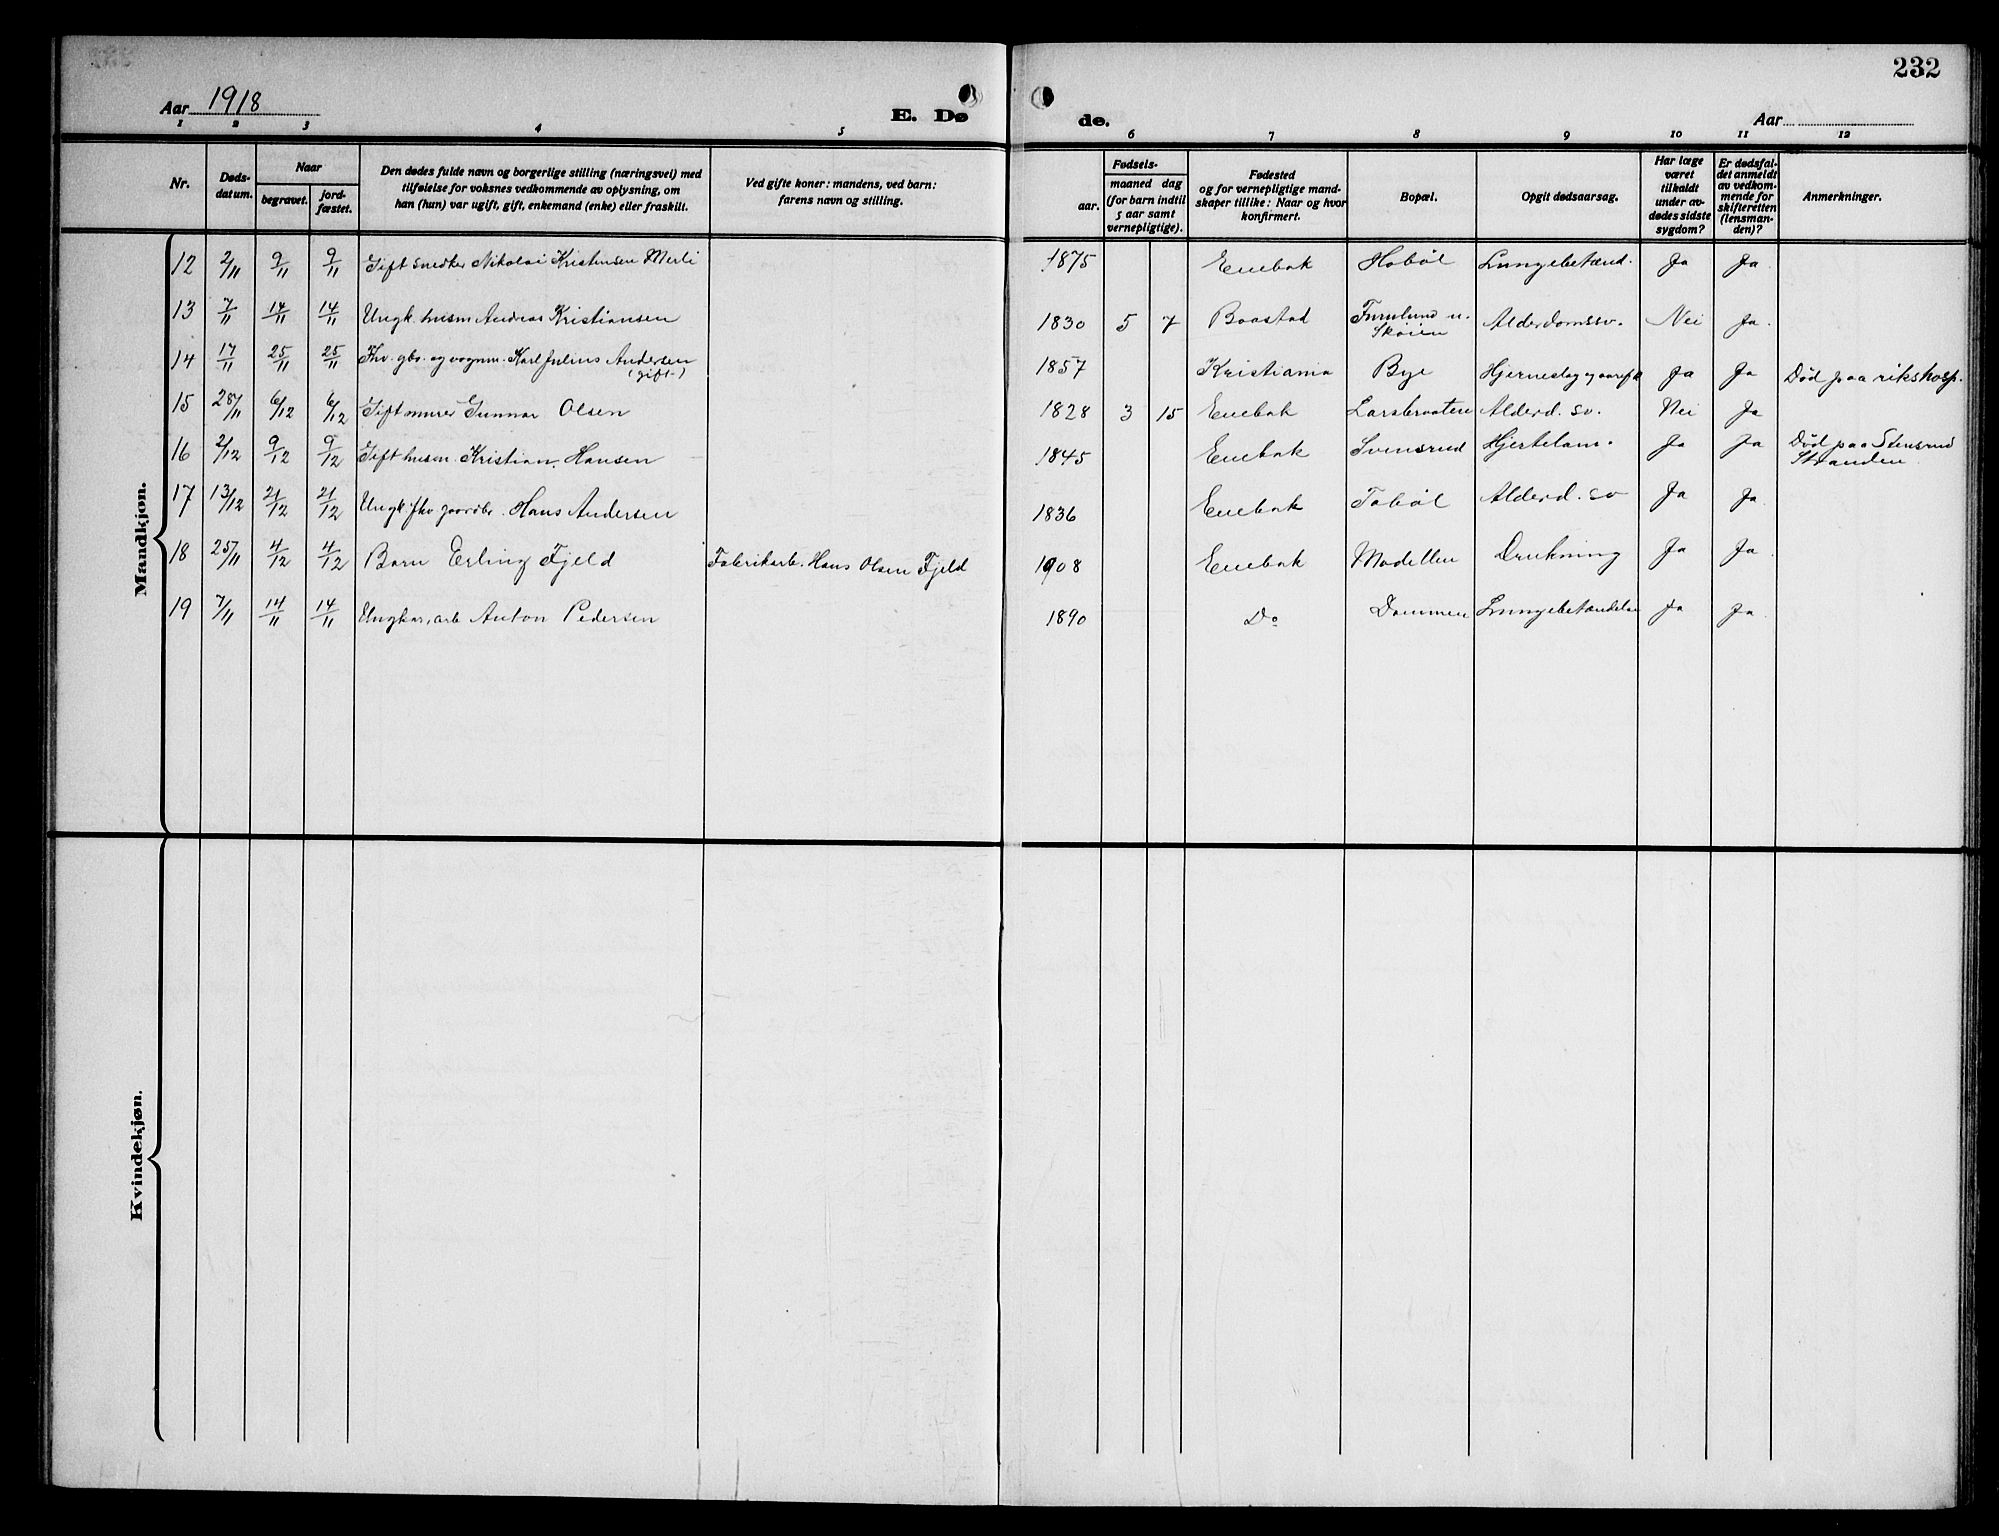 232
Aar 1918
E. Dø
de.
Aar
1 2 3 4 5 6 7 8 9 10 11 12
Nr.
Døds-
datum.
Naar
begravet.
jord-
fæstet.
Den dødes fulde navn og borgerlige stilling (næringsvei) med
tilføielse for voksnes vedkommende av oplysning, om
han (hun) var ugift, gift, enkemand (enke) eller fraskilt.
Ved gifte koner: mandens, ved barn:
farens navn og stilling.
Fødsels-
aar.
maaned dag
(for barn indtil
5 aar samt
vernepligtige).
Fødested
og for vernepligtige mand-
skaper tillike: Naar og hvor
konfirmert.
Bopæl.
Opgit dødsaarsag.
Har læge
været
tilkaldt
under av-
dødes sidste
sygdom?
Er dødsfal-
det anmeldt
av vedkom-
mende for
skifteretten
(lensman-
den)?
Anmerkninger.
Mandkjøn.
12 2/11 9/11 9/11 Gift snedker Nikolai Kristensen Merli 1875 Enebak Hobøl Lungebetænd. Ja Ja
13 7/11 14/11 14/11 Ungk. husm Andreas Kristiansen 1830 5 7 Baastad Furulund u. Skøien Alderdomssv. Nei Ja
14 17/11 25/11 25/11 Fhv. gbr. og vognm. Karl Julius Andersen (gift) 1857 Kristiania Bye Hjerneslag og Ja Ja Død paa rikshosp.
15 28/11 6/12 6/12 Gift murer Gunnar Olsen 1828 3 15 Enebak Larsbraaten Alderd. sv. Nei Ja
16 2/12 9/12 9/12 Gift husm. Kristian Hansen 1845 Enebak Svensrud Hjertelam. Ja Ja Død paa Stensrud Stranden
17 13/12 21/12 21/12 Ungk. fhv gaardbr. Hans Andersen 1836 Enebak Tobøl Alderd. sv Ja Ja
18 25/11 4/12 4/12 Barn Erling Fjeld Fabrikarb. Hans Olsen Fjeld 1908 Enebak Modellen Drukning Ja Ja
19 7/11 14/11 14/11 Ungkar, arb Anton Pedersen 1890 Do Dammen Lungebetændelse Ja Ja
Kvindekjøn.